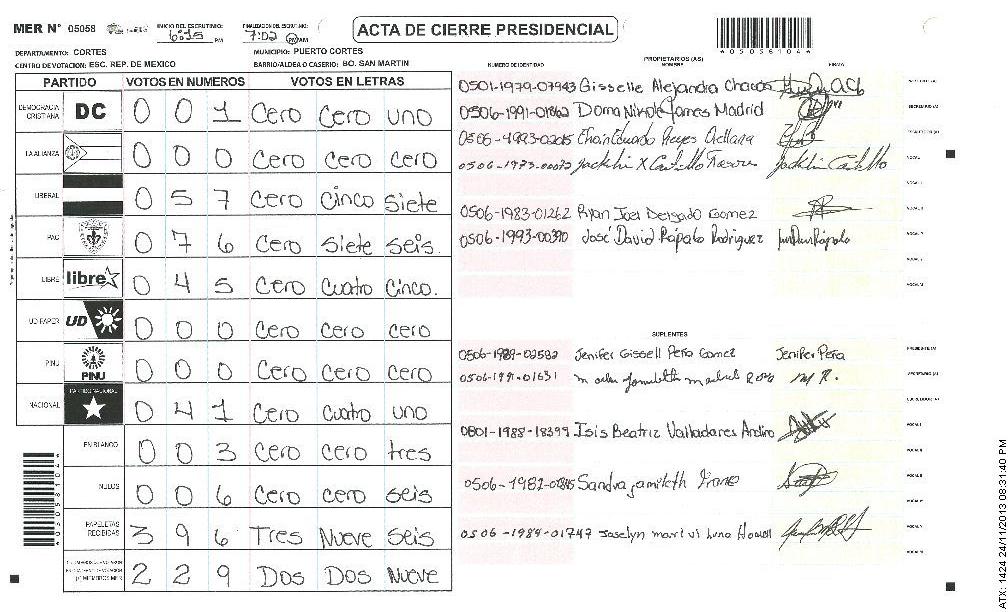 MER N° 05058
INICIO DEL ESCRUTINIO: 6:15 PM
FINALIZACION DEL ESCRUTINIO: 7:02 PM
ACTA DE CIERRE PRESIDENCIAL
DEPARTAMENTO: CORTES
MUNICIPIO: PUERTO CORTES
CENTRO DE VOTACION: ESC. REP. DE MEXICO
BARRIO/ALDEA O CASERIO: BO. SAN MARTIN
PARTIDO VOTOS EN NUMEROS VOTOS EN LETRAS
DEMOCRACIA CRISTIANA DC 0 0 1 Cero Cero uno
LA ALIANZA 0 0 0 Cero Cero Cero
LIBERAL 0 5 7 Cero Cinco Siete
PAC 0 7 6 Cero Siete seis.
LIBRE libre 0 4 5 Cero Cuatro Cinco.
UD-FAPER UD 0 0 0 Cero Cero cero
PINU PINU 0 0 0 Cero Cero Cero
NACIONAL PARTIDO NACIONAL 0 4 1 Cero Cuatro uno
EN BLANCO 0 0 3 Cero cero tres
NULOS 0 0 6 Cero cero seis
PAPELETAS RECIBIDAS 3 9 6 Tres Nueve Seis
2 2 9 Dos Dos Nueve
PROPIETARIOS (AS)
NUMERO DE IDENTIDAD NOMBRE FIRMA
0501-1979-07943 Gisselle Alejandra
0506-1991-01862 James Madrid
Reyes Orellana
0506-1973-00072 Jackelin X Castillo Jackelin Castillo
0506-1983-01262 Ryan Joel Delgado Gomez
0506-1993-00390 José David Rápalo Rodriguez
SUPLENTES
0506-1989-02582 Jenifer Gissell Peña Gomez Jenifer Peña
0506-1991-01631
0801-1988-18399 Isis Beatriz Valladares Andino
Sandra
0506-1984-01747 Joselyn
ATX: 1424 24/11/2013 08:31:40 PM